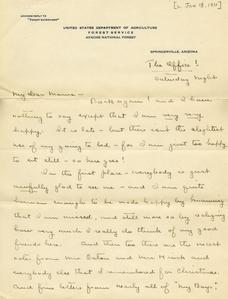 [c. Jan 18, 1911]
ADDRESS REPLY TO
"FOREST SUPERVISOR"
UNITED STATES DEPARTMENT OF AGRICULTURE
FOREST SERVICE
APACHE NATIONAL FOREST
SPRINGERVILLE, ARIZONA
The Office!
Saturday Night
My dear Mama -
Back again! and I have
nothing to say except that I am very very
happy. It is late - but there isn't the slightest
use of my going to bed - for I am just too happy
to sit still - so here goes!
In the first place - everybody is just
awfully glad to see me - and I am quite
human enough to be made happy by knowing
that I am missed, and still more so by realizing
how very much I really do think of my good
friends here. And then too there are the nicest
notes from Mrs Eaton and Mrs and
everybody else that I remembered for Christmas.
And fine letters from nearly all of "my Boys".